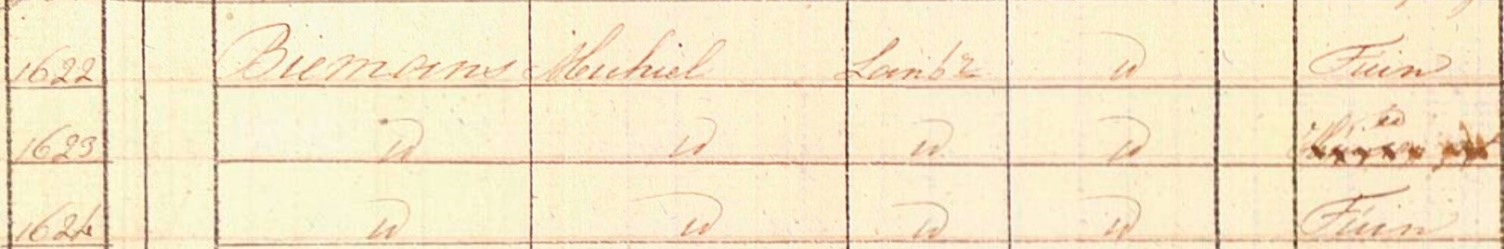 1622 Biemans Michiel Lambz id Tuin
1623 id id id id id
1624 id id id id Tuin